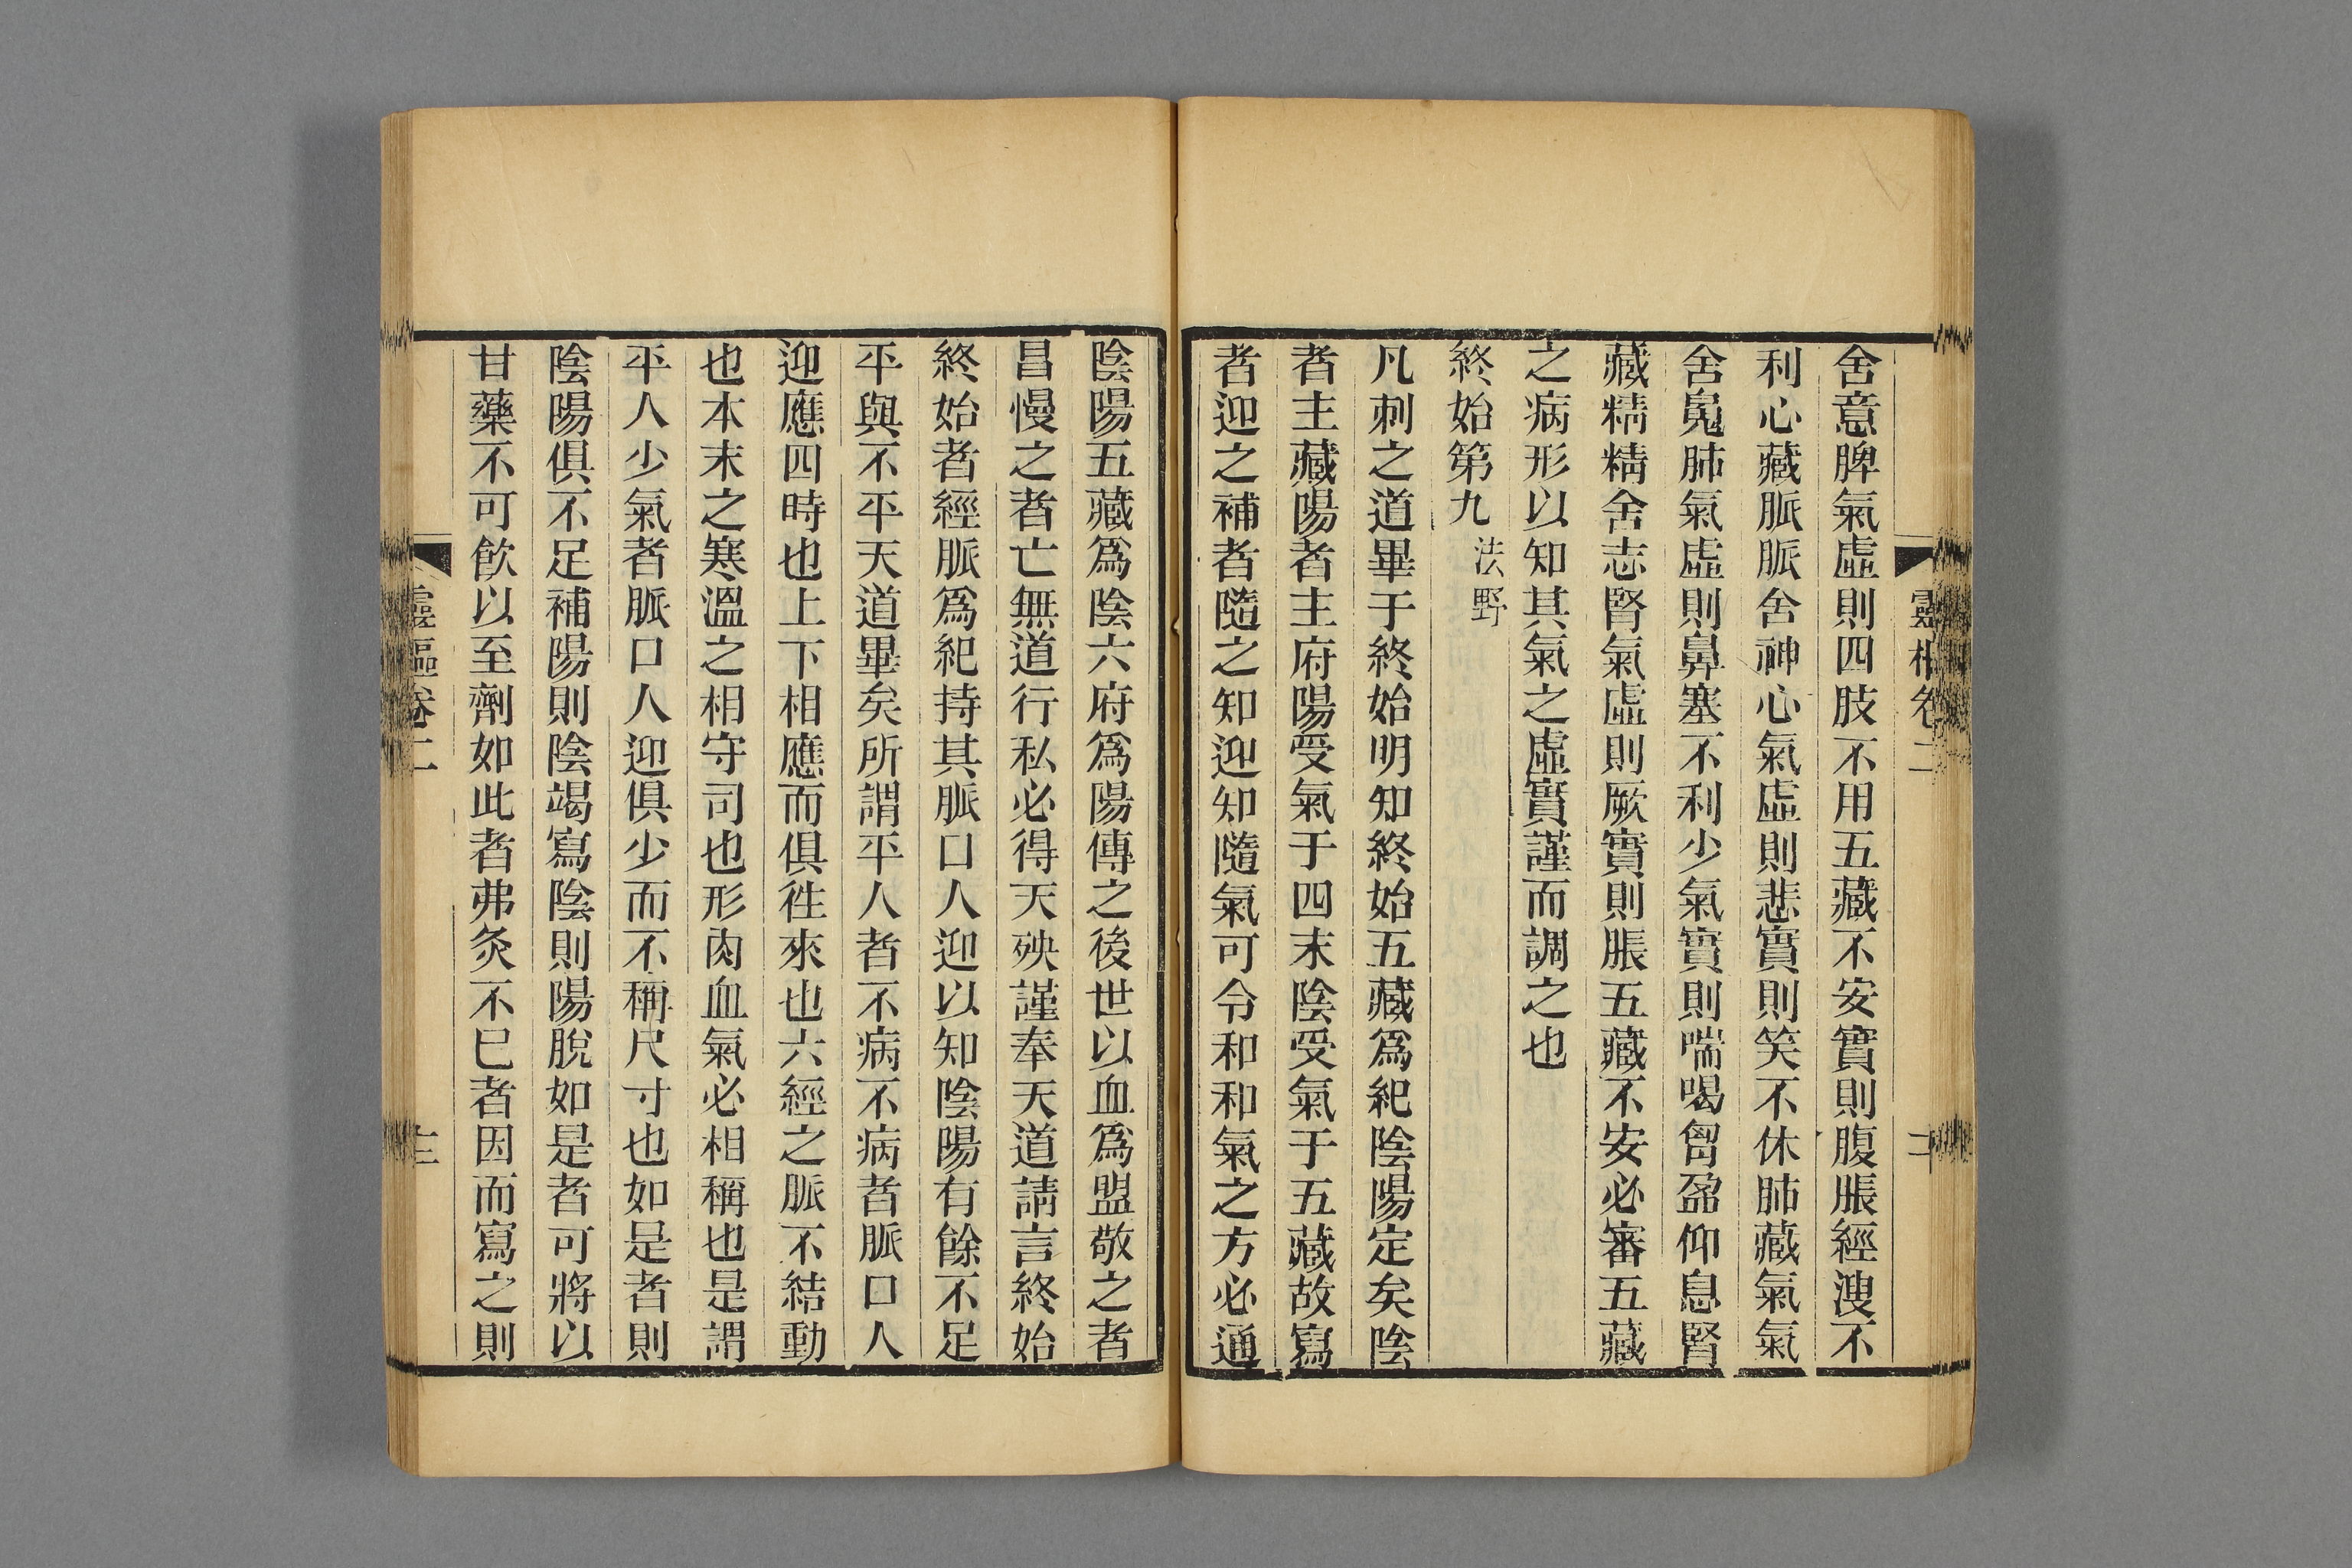 靈樞卷二
舍意脾氣虛則四肢不用五藏不安實則腹脹經溲不
利心藏脈脈舍神心氣虛則悲實則笑不休肺藏氣氣
舍魄肺氣虛則鼻塞不利少氣實則喘喝胷盈仰息腎
藏精精舍志腎氣虛則厥實則脹五藏不安必審五藏
之病形以知其氣之虛實謹而調之也
終始第九 法野
凡刺之道畢于終始明知終始五藏爲紀陰陽定矣陰
者主藏陽者主府陽受氣于四末陰受氣于五藏故寫
者迎之補者隨之知迎知隨氣可令和和氣之方必通
陰陽五藏爲陰六府爲陽傳之後世以血爲盟敬之者
昌慢之者亡無道行私必得天殃謹奉天道請言終始
終始者經脈爲紀持其脈口人迎以知陰陽有餘不足
平與不平天道畢矣所謂平人者不病不病者脈口人
迎應四時也上下相應而俱徃來也六經之脈不結動
也本末之寒溫之相守司也形肉血氣必相稱也是謂
平人少氣者脈口人迎俱少而不稱尺寸也如是者則
陰陽俱不足補陽則陰竭寫陰則陽脫如是者可將以
甘藥不可飮以至劑如此者弗灸不已者因而寫之則
靈樞卷二